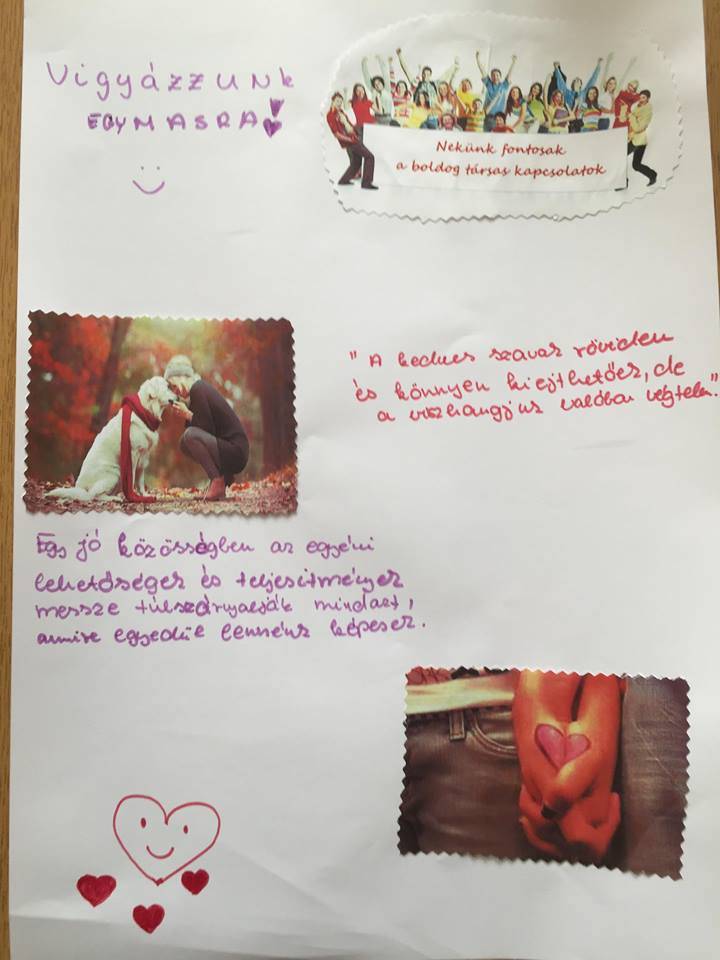 Vigyázzunk
EGYMÁSRA!
Nekünk fontosak
a boldog társas kapcsolatok
"A kedves szavak röviden
és könnyen kiejthetőek, de
a visszhangjuk valóban végtelen."
Egy jó közösségben az egyéni
lehetőségek és teljesítmények
messze túlszárnyalják mindazt,
amire egyedül lennénk képesek.